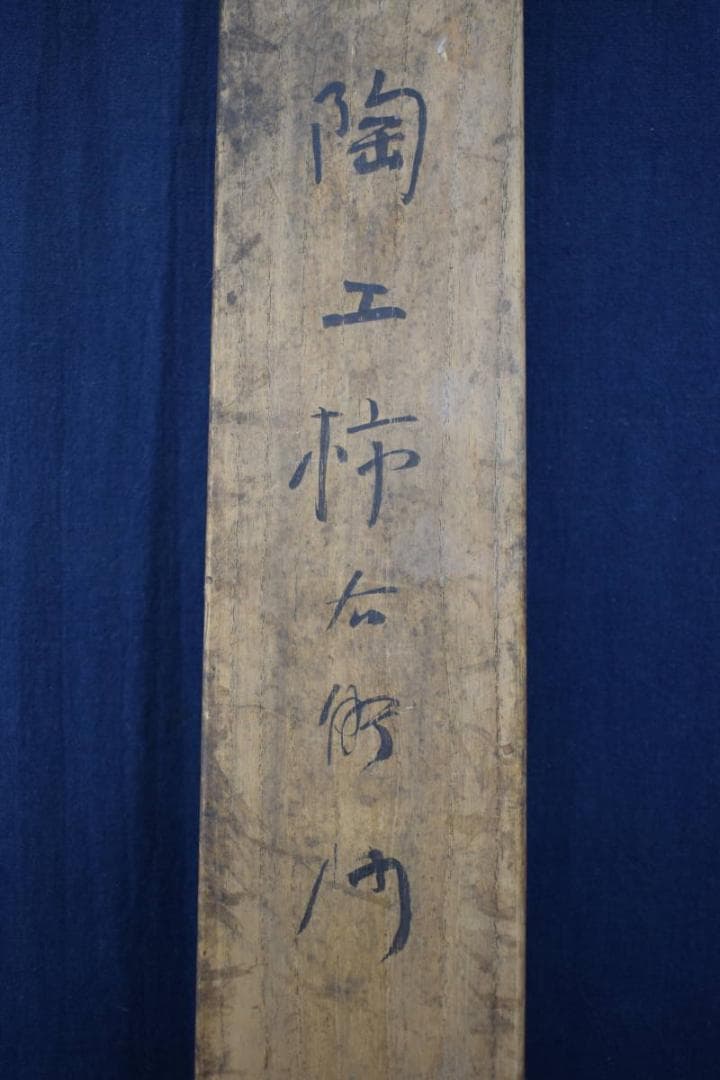 陶工柿右衛门